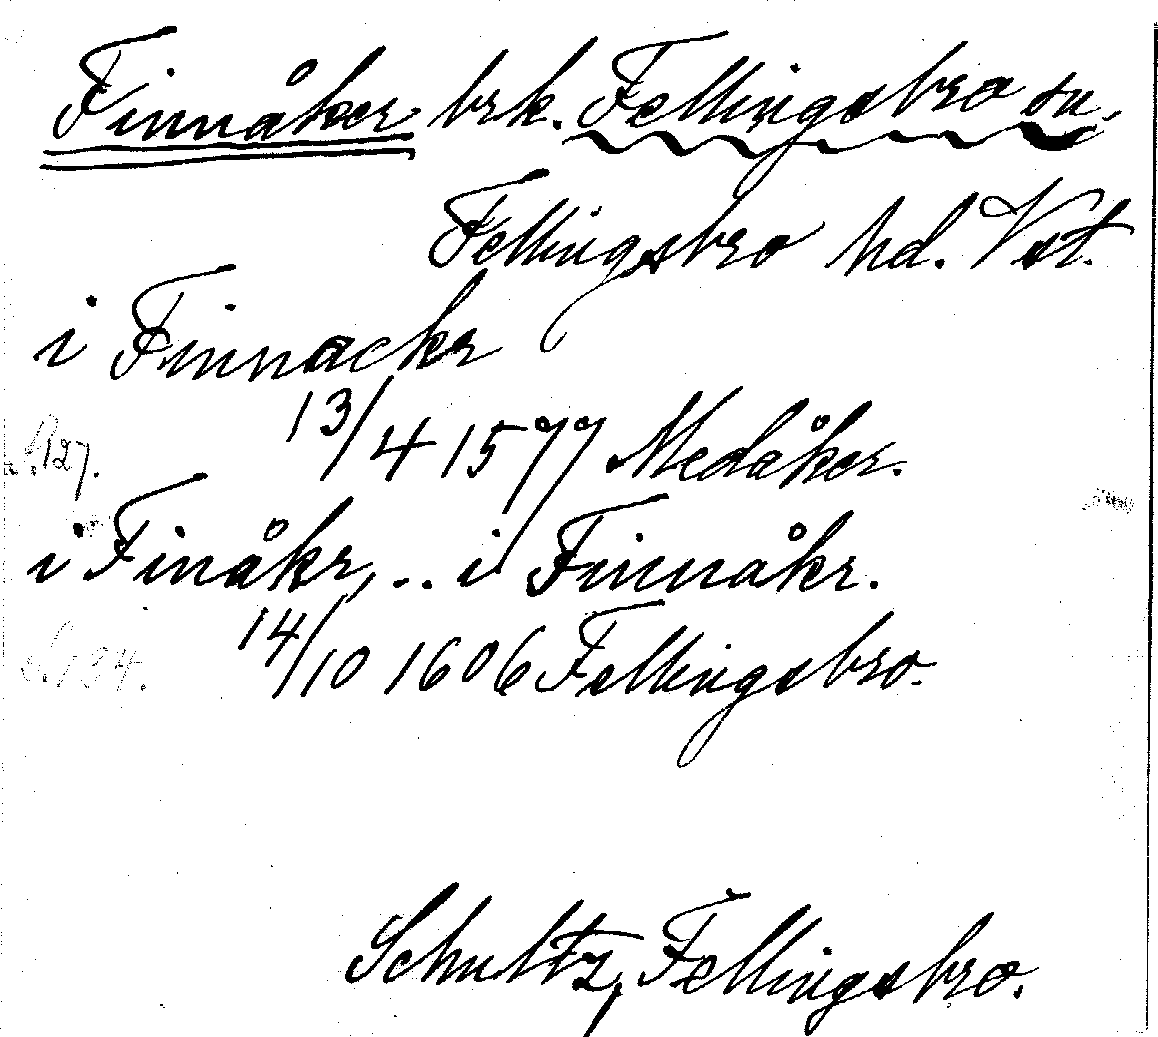 Finnåker brk. Fellingsbro sn.
Fellingsbro hd. Vst.
i Finnackr
13/4 1577 Medåker.
S. 127.
i Finåkr, .. i Finnåkr.
14/10 1606 Fellingsbro.
S. 134.
Schultz, Fellingsbro.